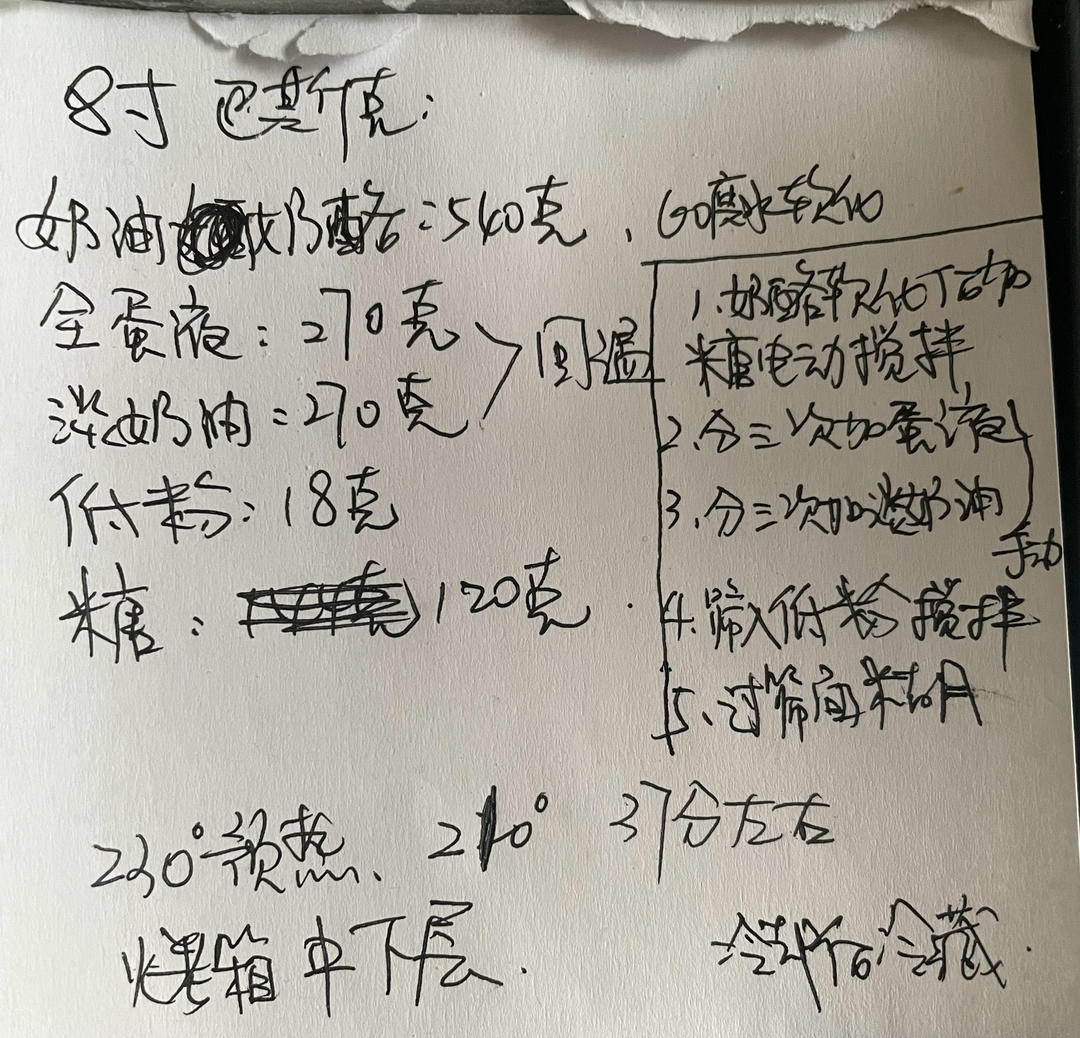 8寸 巴斯克:
奶油奶酪:540克、60度水软化
全蛋液:270克
淡奶油:270克
回温
低粉:18克
糖:120克.
1、奶酪软化后加
糖电动搅拌
2、分三次加蛋液
3、分三次加淡奶油
手动
4、筛入低粉搅拌
5、过筛面糊
230°预热、210° 37分左右
烤箱中下层.
冷却后冷藏.